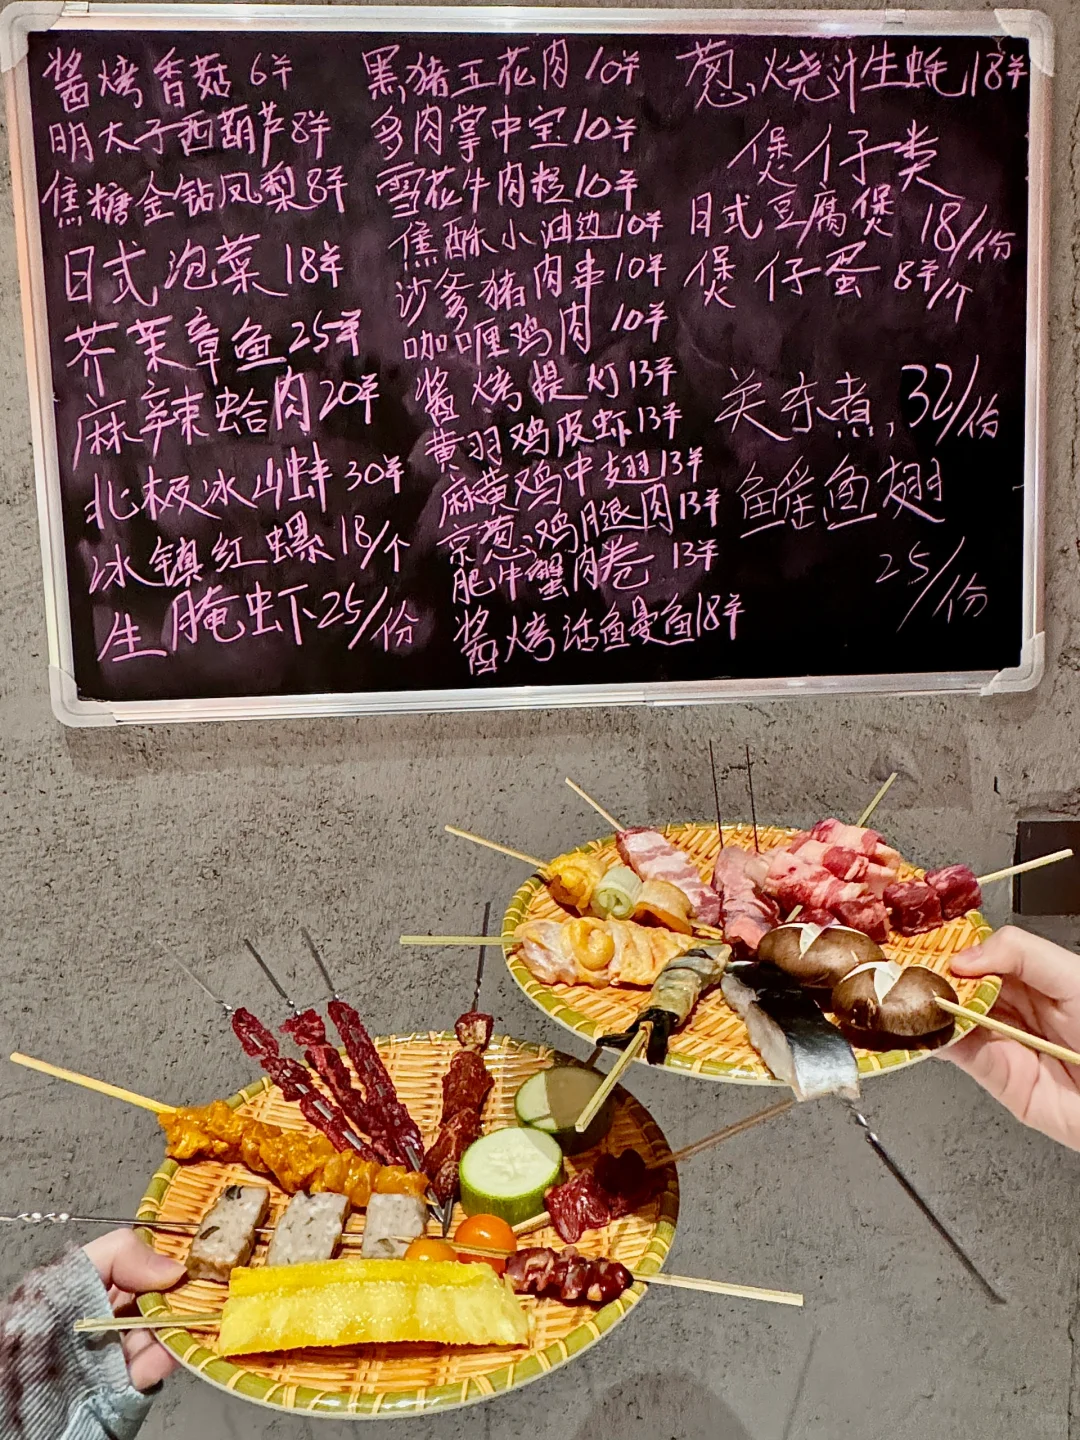 酱烤香菇 6半
明太子西葫芦8半
焦糖金钻凤梨8半
日式泡菜 18半
芥茉章鱼25半
麻辣蛤肉20半
北极冰山蚌 30半
冰镇红螺 18/个
生腌虾25/份
黑猪五花肉 10半
多肉掌中宝10半
雪花牛肉粒10半
焦酥小油边10半
沙爹猪肉串10半
咖喱鸡肉 10半
酱烤提灯13半
黄羽鸡皮虾13半
麻黄鸡中翅13半
京葱鸡腿肉13半
肥牛蟹肉卷 13半
酱烤活鱼曼鱼18半
葱烧汁生蚝18半
煲仔类
日式豆腐煲 18/份
煲仔蛋 8半/个
关东煮,32/份
鱼翅
25/份